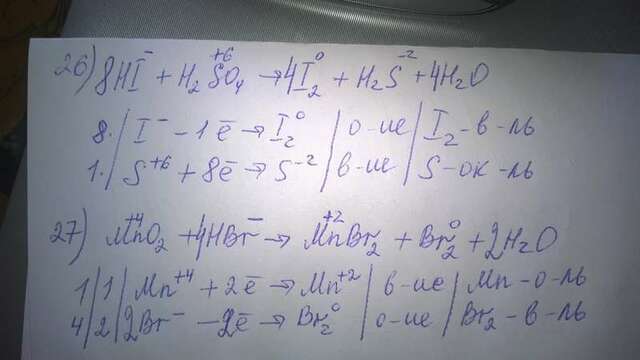 26) 8HI⁻ + H₂S⁺⁶O₄ → 4I₂⁰ + H₂S⁻² + 4H₂O
8. / I⁻ - 1ē → I₂⁰ | о-ие | I₂-в-ль
1. / S⁺⁶ + 8ē → S⁻² | в-ие | S-ок-ль
27) Mn⁺⁴O₂ + 4HBr⁻ → Mn⁺²Br₂ + Br₂⁰ + 2H₂O
1 | 1 | Mn⁺⁴ + 2ē → Mn⁺² | в-ие | Mn-о-ль
4 | 2 | 2Br⁻ - 2ē → Br₂⁰ | о-ие | Br₂-в-ль